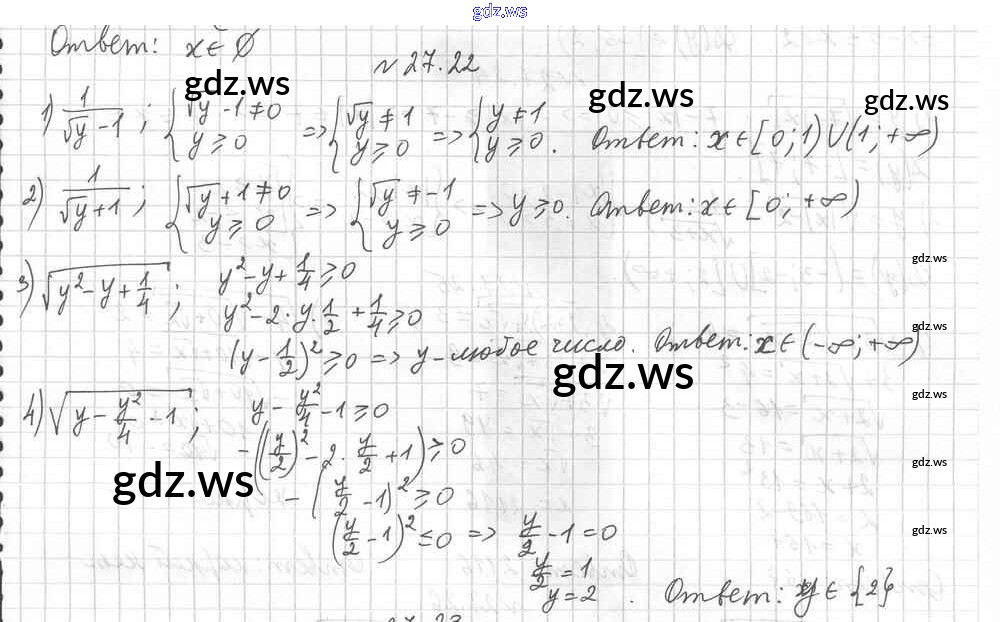 gdz.ws
Ответ: x ∈ ∅
№ 27.22
gdz.ws gdz.ws gdz.ws
1) 1/(√y - 1); { √y - 1 ≠ 0 y ≥ 0 => { √y ≠ 1 y ≥ 0 => { y ≠ 1 y ≥ 0. Ответ: x ∈ [0; 1) ∪ (1; +∞)
2) 1/(√y + 1); { √y + 1 ≠ 0 y ≥ 0 => { √y ≠ -1 y ≥ 0 => y ≥ 0. Ответ: x ∈ [0; +∞)
gdz.ws
3) √(y² - y + 1/4); y² - y + 1/4 ≥ 0
y² - 2 · y · 1/2 + 1/4 ≥ 0
gdz.ws
(y - 1/2)² ≥ 0 => y - любое число. Ответ: x ∈ (-∞; +∞)
gdz.ws
gdz.ws
4) √(y - y²/4 - 1); y - y²/4 - 1 ≥ 0
-((y/2)² - 2 · y/2 + 1) ≥ 0
gdz.ws
gdz.ws
-(y/2 - 1)² ≥ 0
gdz.ws
(y/2 - 1)² ≤ 0 => y/2 - 1 = 0
y/2 = 1
y = 2. Ответ: y ∈ {2}
27.23